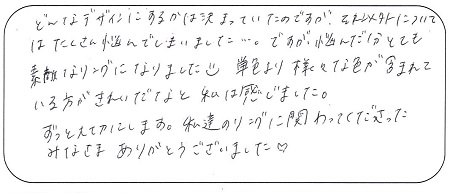 どんなデザインにするかは決まっていたのですが、セキンメタルについて
はたくさん悩んでしまいました…。ですが悩んだ分とても
素敵なリングになりました 単色より様々な色が含まれて
いる方がきれいだなと私は感じました。
ずっと大切にします。私達のリングに関わってくださった
みなさま ありがとうございました♡